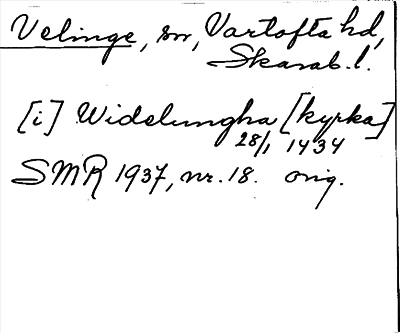 Velinge, sn, Vartofta hd,
Skarab. l.
[i] Widelungha [kyrka]
28/1 1434
SMR 1937, nr. 18. orig.